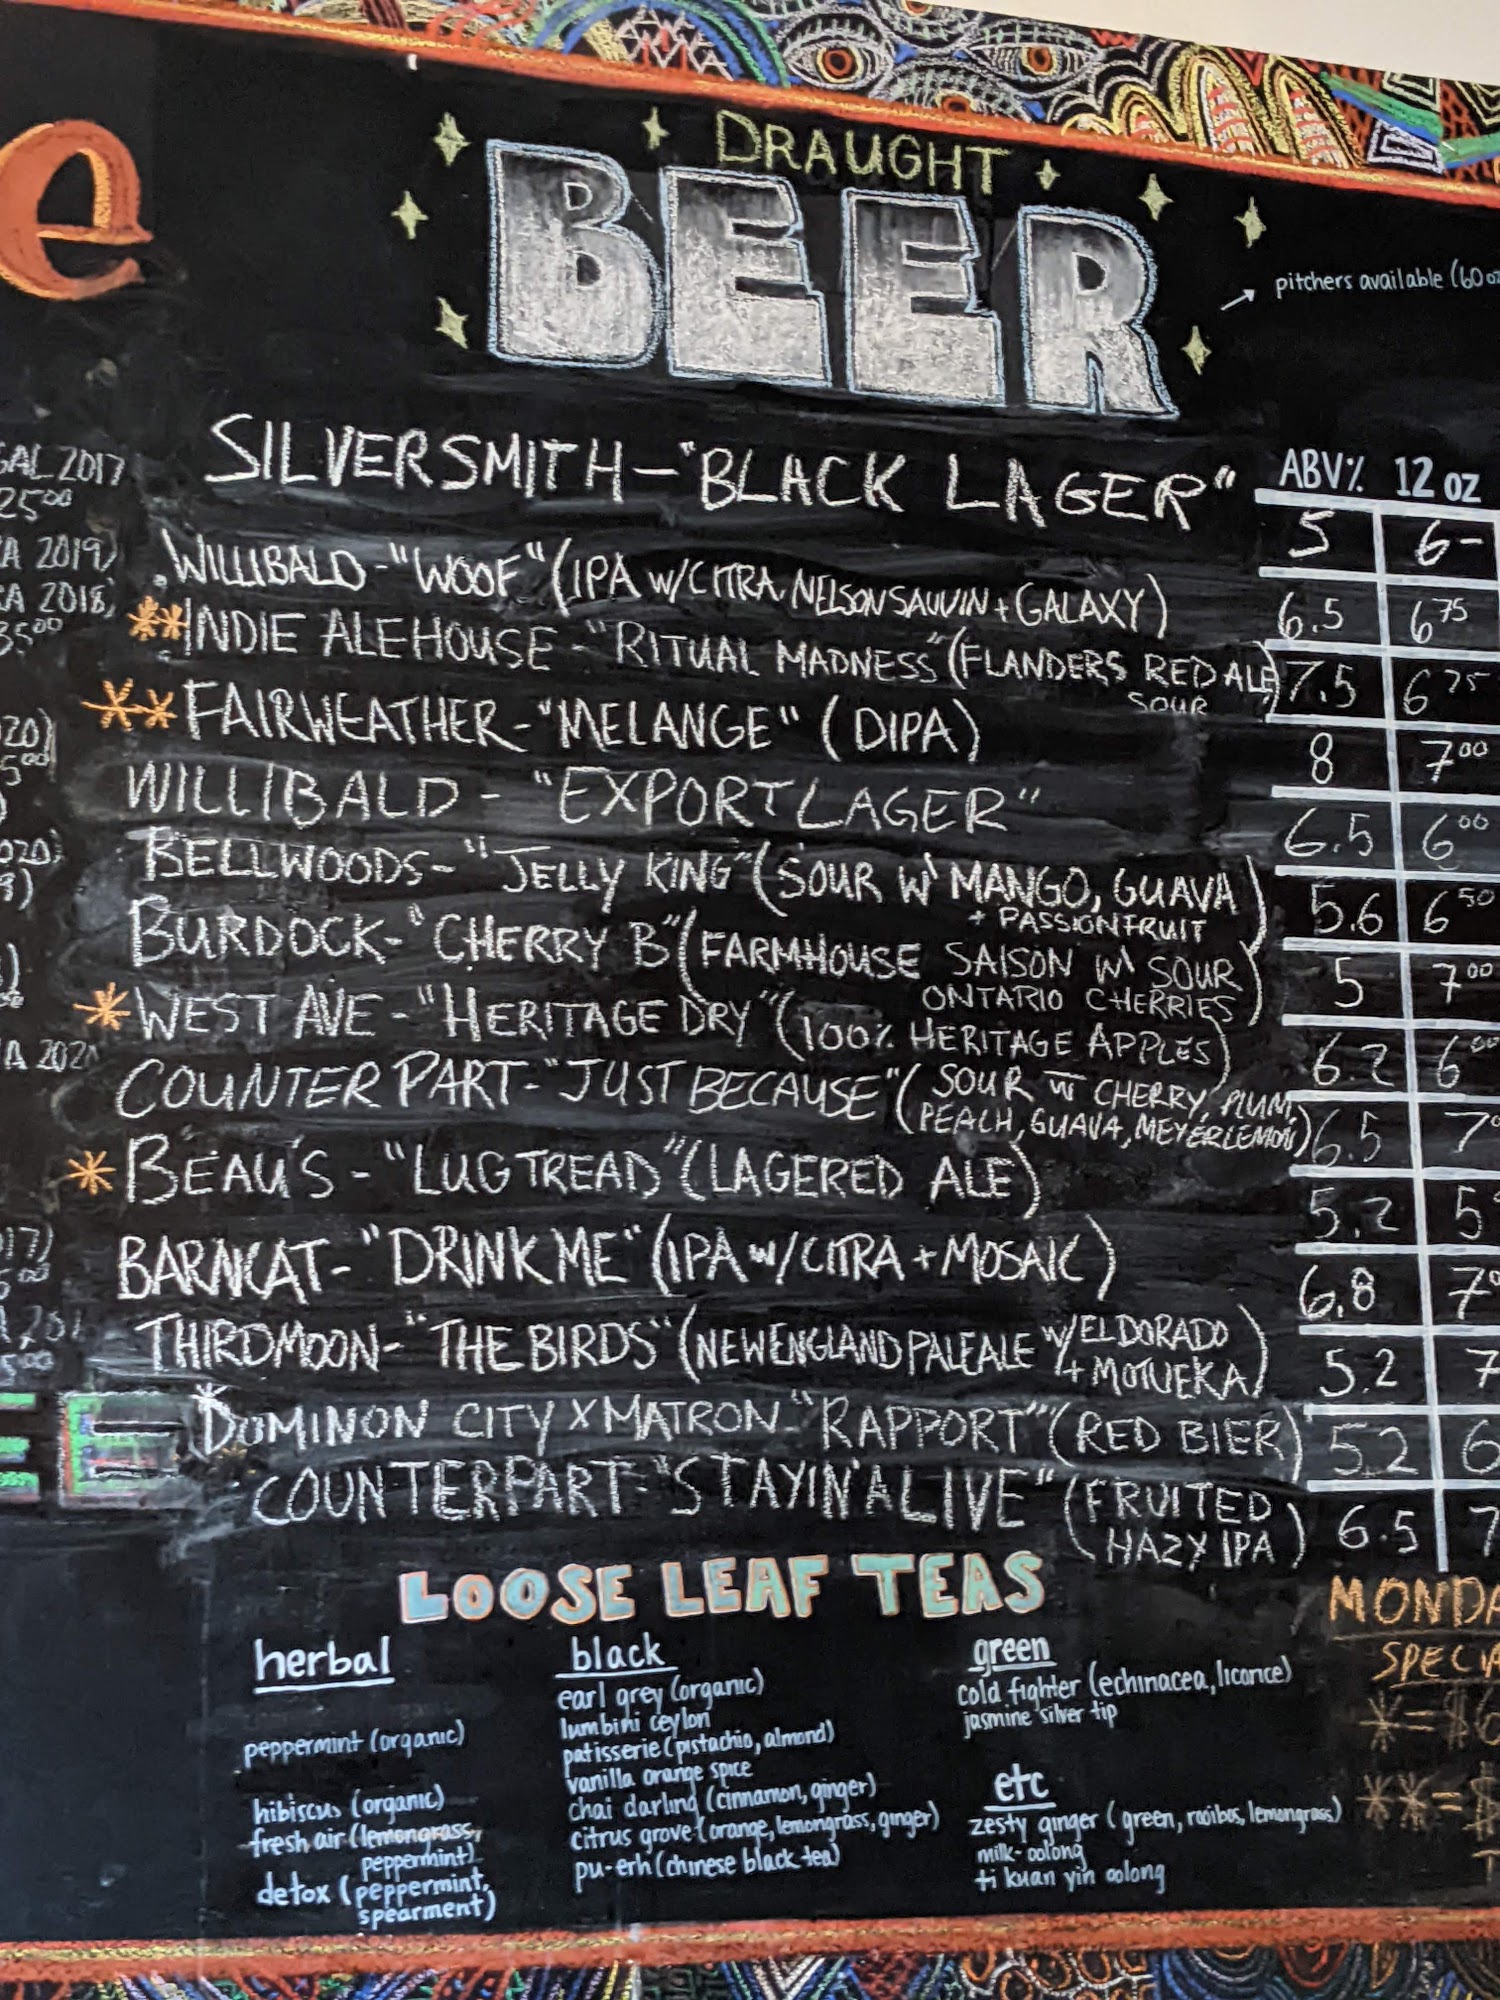 e
DRAUGHT
BEER
pitchers available (60 oz
ABV% 12 oz
SILVERSMITH - "BLACK LAGER" 5 6-
WILLIBALD - "WOOF" (IPA w/CITRA, NELSON SAUVIN + GALAXY) 6.5 6 75
**INDIE ALEHOUSE - "RITUAL MADNESS" (FLANDERS RED ALE 7.5 6 75
SOUR )
**FAIRWEATHER - "MELANGE" (DIPA) 8 7 00
WILLIBALD - "EXPORT LAGER" 6.5 6 00
BELLWOODS - "JELLY KING" (SOUR W' MANGO, GUAVA 5.6 6 50
+ PASSIONFRUIT )
BURDOCK - "CHERRY B" (FARMHOUSE SAISON W' SOUR 5 7 00
ONTARIO CHERRIES)
*WEST AVE - "HERITAGE DRY" (100% HERITAGE APPLES) 6.2 6 00
COUNTER PART - "JUST BECAUSE" (SOUR W CHERRY, PLUM, 6.5 7
PEACH, GUAVA, MEYER LEMON)
*BEAU'S - "LUG TREAD" (LAGERED ALE) 5.2 5
BARNCAT - "DRINK ME" (IPA w/CITRA + MOSAIC) 6.8 7
THIRD MOON - "THE BIRDS" (NEW ENGLAND PALE ALE w/EL DORADO 5.2 7
+ MOTUEKA)
*DOMINON CITY x MATRON - "RAPPORT" (RED BIER) 5.2 6
COUNTERPART - "STAYIN' ALIVE" (FRUITED 6.5 7
HAZY IPA)
GAL 2017
25 00
A 2019)
A 2018,
35 00
020)
5 00
020)
9)
A 202
17)
5 00
5 00
E
LOOSE LEAF TEAS
herbal
peppermint (organic)
hibiscus (organic)
fresh air (lemongrass,
peppermint)
detox (peppermint,
spearment)
black
earl grey (organic)
lumbini ceylon
patisserie (pistachio, almond)
vanilla orange spice
chai darling (cinnamon, ginger)
citrus grove (orange, lemongrass, ginger)
pu-erh (chinese black tea)
green
cold fighter (echinacea, licorice)
jasmine silver tip
etc
zesty ginger (green, rooibos, lemongrass)
milk-oolong
ti kuan yin oolong
MONDA
SPECIA
* = $6
** = $
T